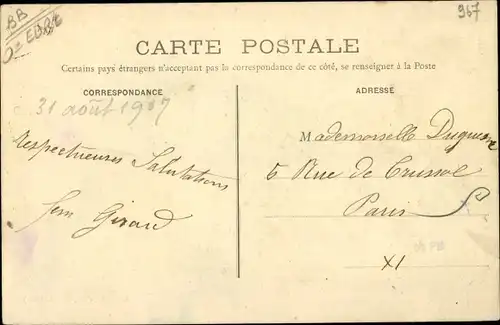 BB
967
CARTE POSTALE
Certains pays étrangers n'acceptant pas la correspondance de ce côté, se renseigner à la Poste
CORRESPONDANCE
31 août 1907
Respectueuses Salutations
Girard
ADRESSE
Mademoiselle
5 Rue de Crussol
Paris
XI